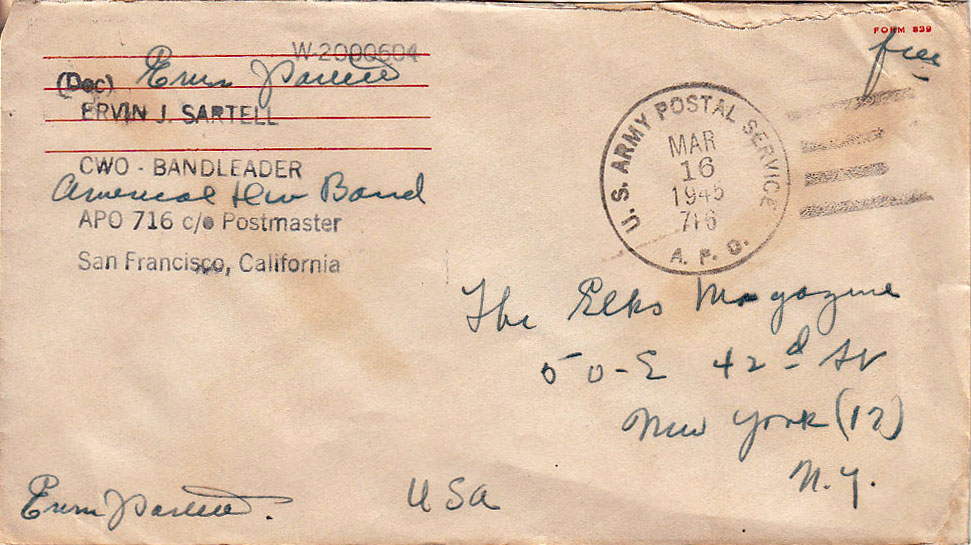 W-2000604
(Doc) Ervin J Sartell
ERVIN J. SARTELL
CWO - BANDLEADER
Americal Div Band
APO 716 c/o Postmaster
San Francisco, California
FORM 539
free
U.S. ARMY POSTAL SERVICE
MAR
16
1945
716
A. P. O.
The Elks Magazine
50-E 42d St
New York (17)
N.Y.
USA
Ervin J Sartell.